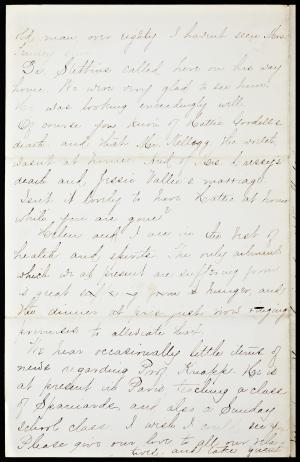 old man over eighty I havent seen Mrs.
Dr. Stebbins called here on his way
home. We were very glad to see him.
He was looking exceedingly well.
Of course you knew of Hattie
death and that Mr. Kellogg, the
wasnt at home. And of Mrs.
death and Jessie Vallie's marriage
Isnt it lovely to have Hattie at home
while you are gone?
Helen and I are in the best of
health and spirits. The only ailment
which we at present are suffering from
is great and is hunger, and
the dinner is just now ringing
promises to alleviate that.
We hear occasionally little items of
news regarding Prof Knapp. He is
at present in Paris teaching a class
of Spaniards, and also a Sunday
school class. I wish I could see you
Please give our love to all our